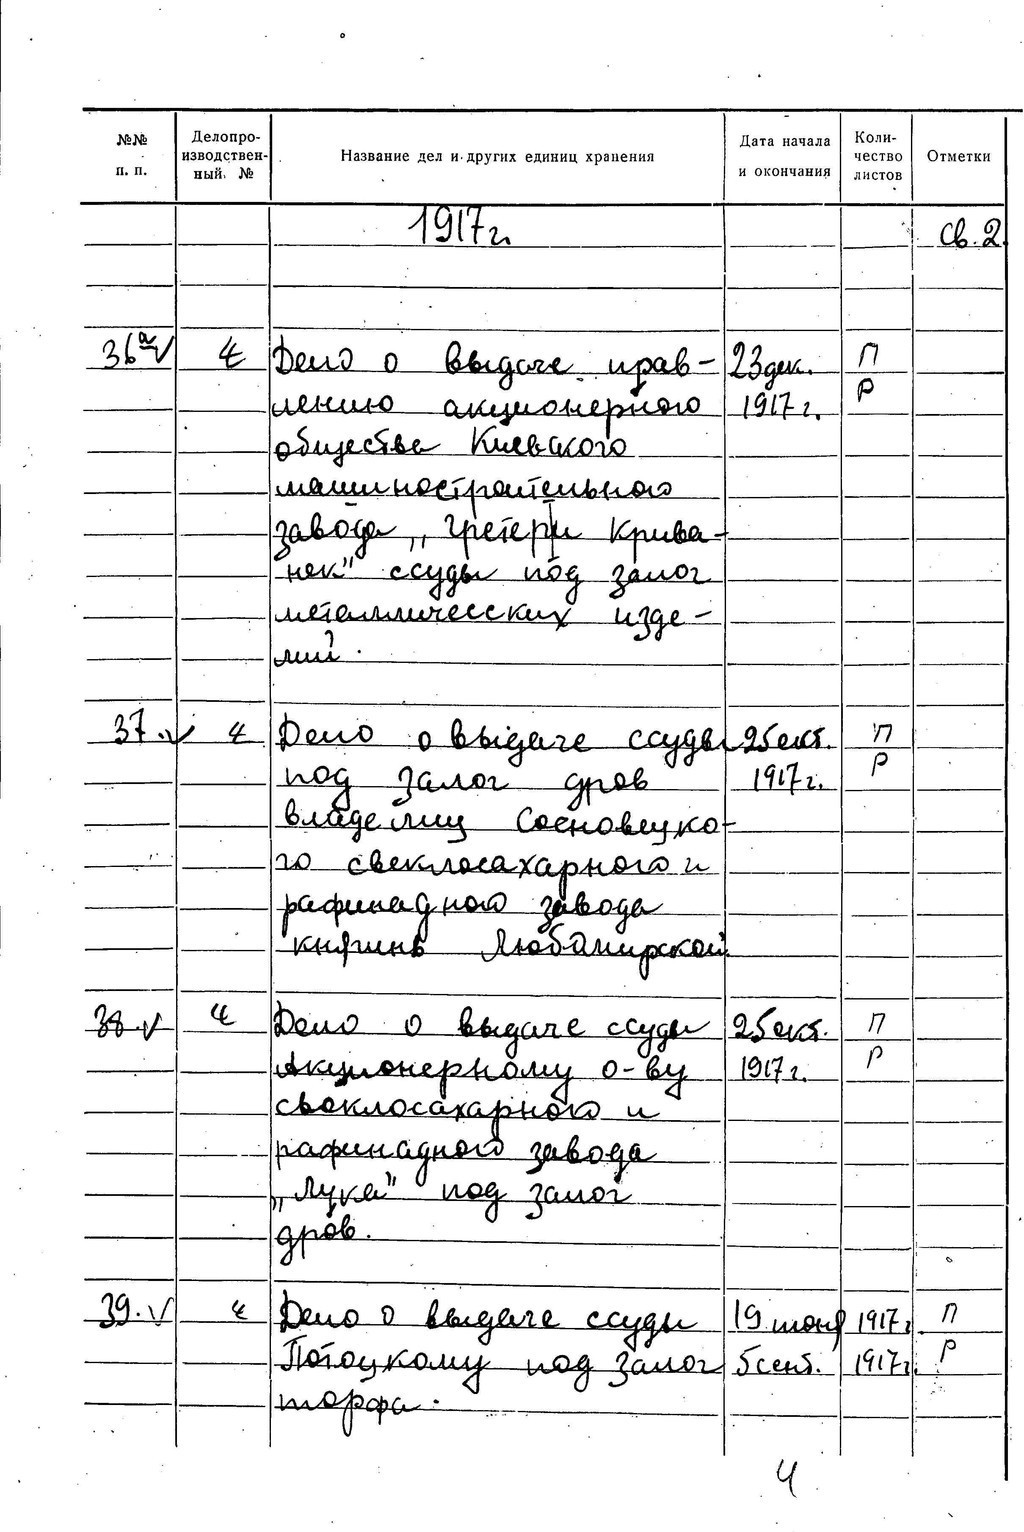 №№ п. п. Делопроизводственный № Название дел и других единиц хранения Дата начала и окончания Количество листов Отметки
1917 г. Св. 2.
36а V Дело о выдаче прав- 23 дек. П
лению акционерного 1917 г. Р
общества Киевского
машиностроительного
завода „Гретер и Крива-
нек" ссуды под залог
металлических изде-
лий.
37. V Дело о выдаче ссуды 25 окт. П
под залог дров 1917 г. Р
владелиц Сосновецко-
го свеклосахарного и
рафинадного завода
княгинь Любомирской.
38. V Дело о выдаче ссуды 25 окт. П
Акционерному о-ву 1917 г. Р
свеклосахарного и
рафинадного завода
„Лука" под залог
дров.
39. V Дело о выдаче ссуды 19 июня 1917 г. П
Потоцкому под залог 5 сент. 1917 г. Р
торфа.
4